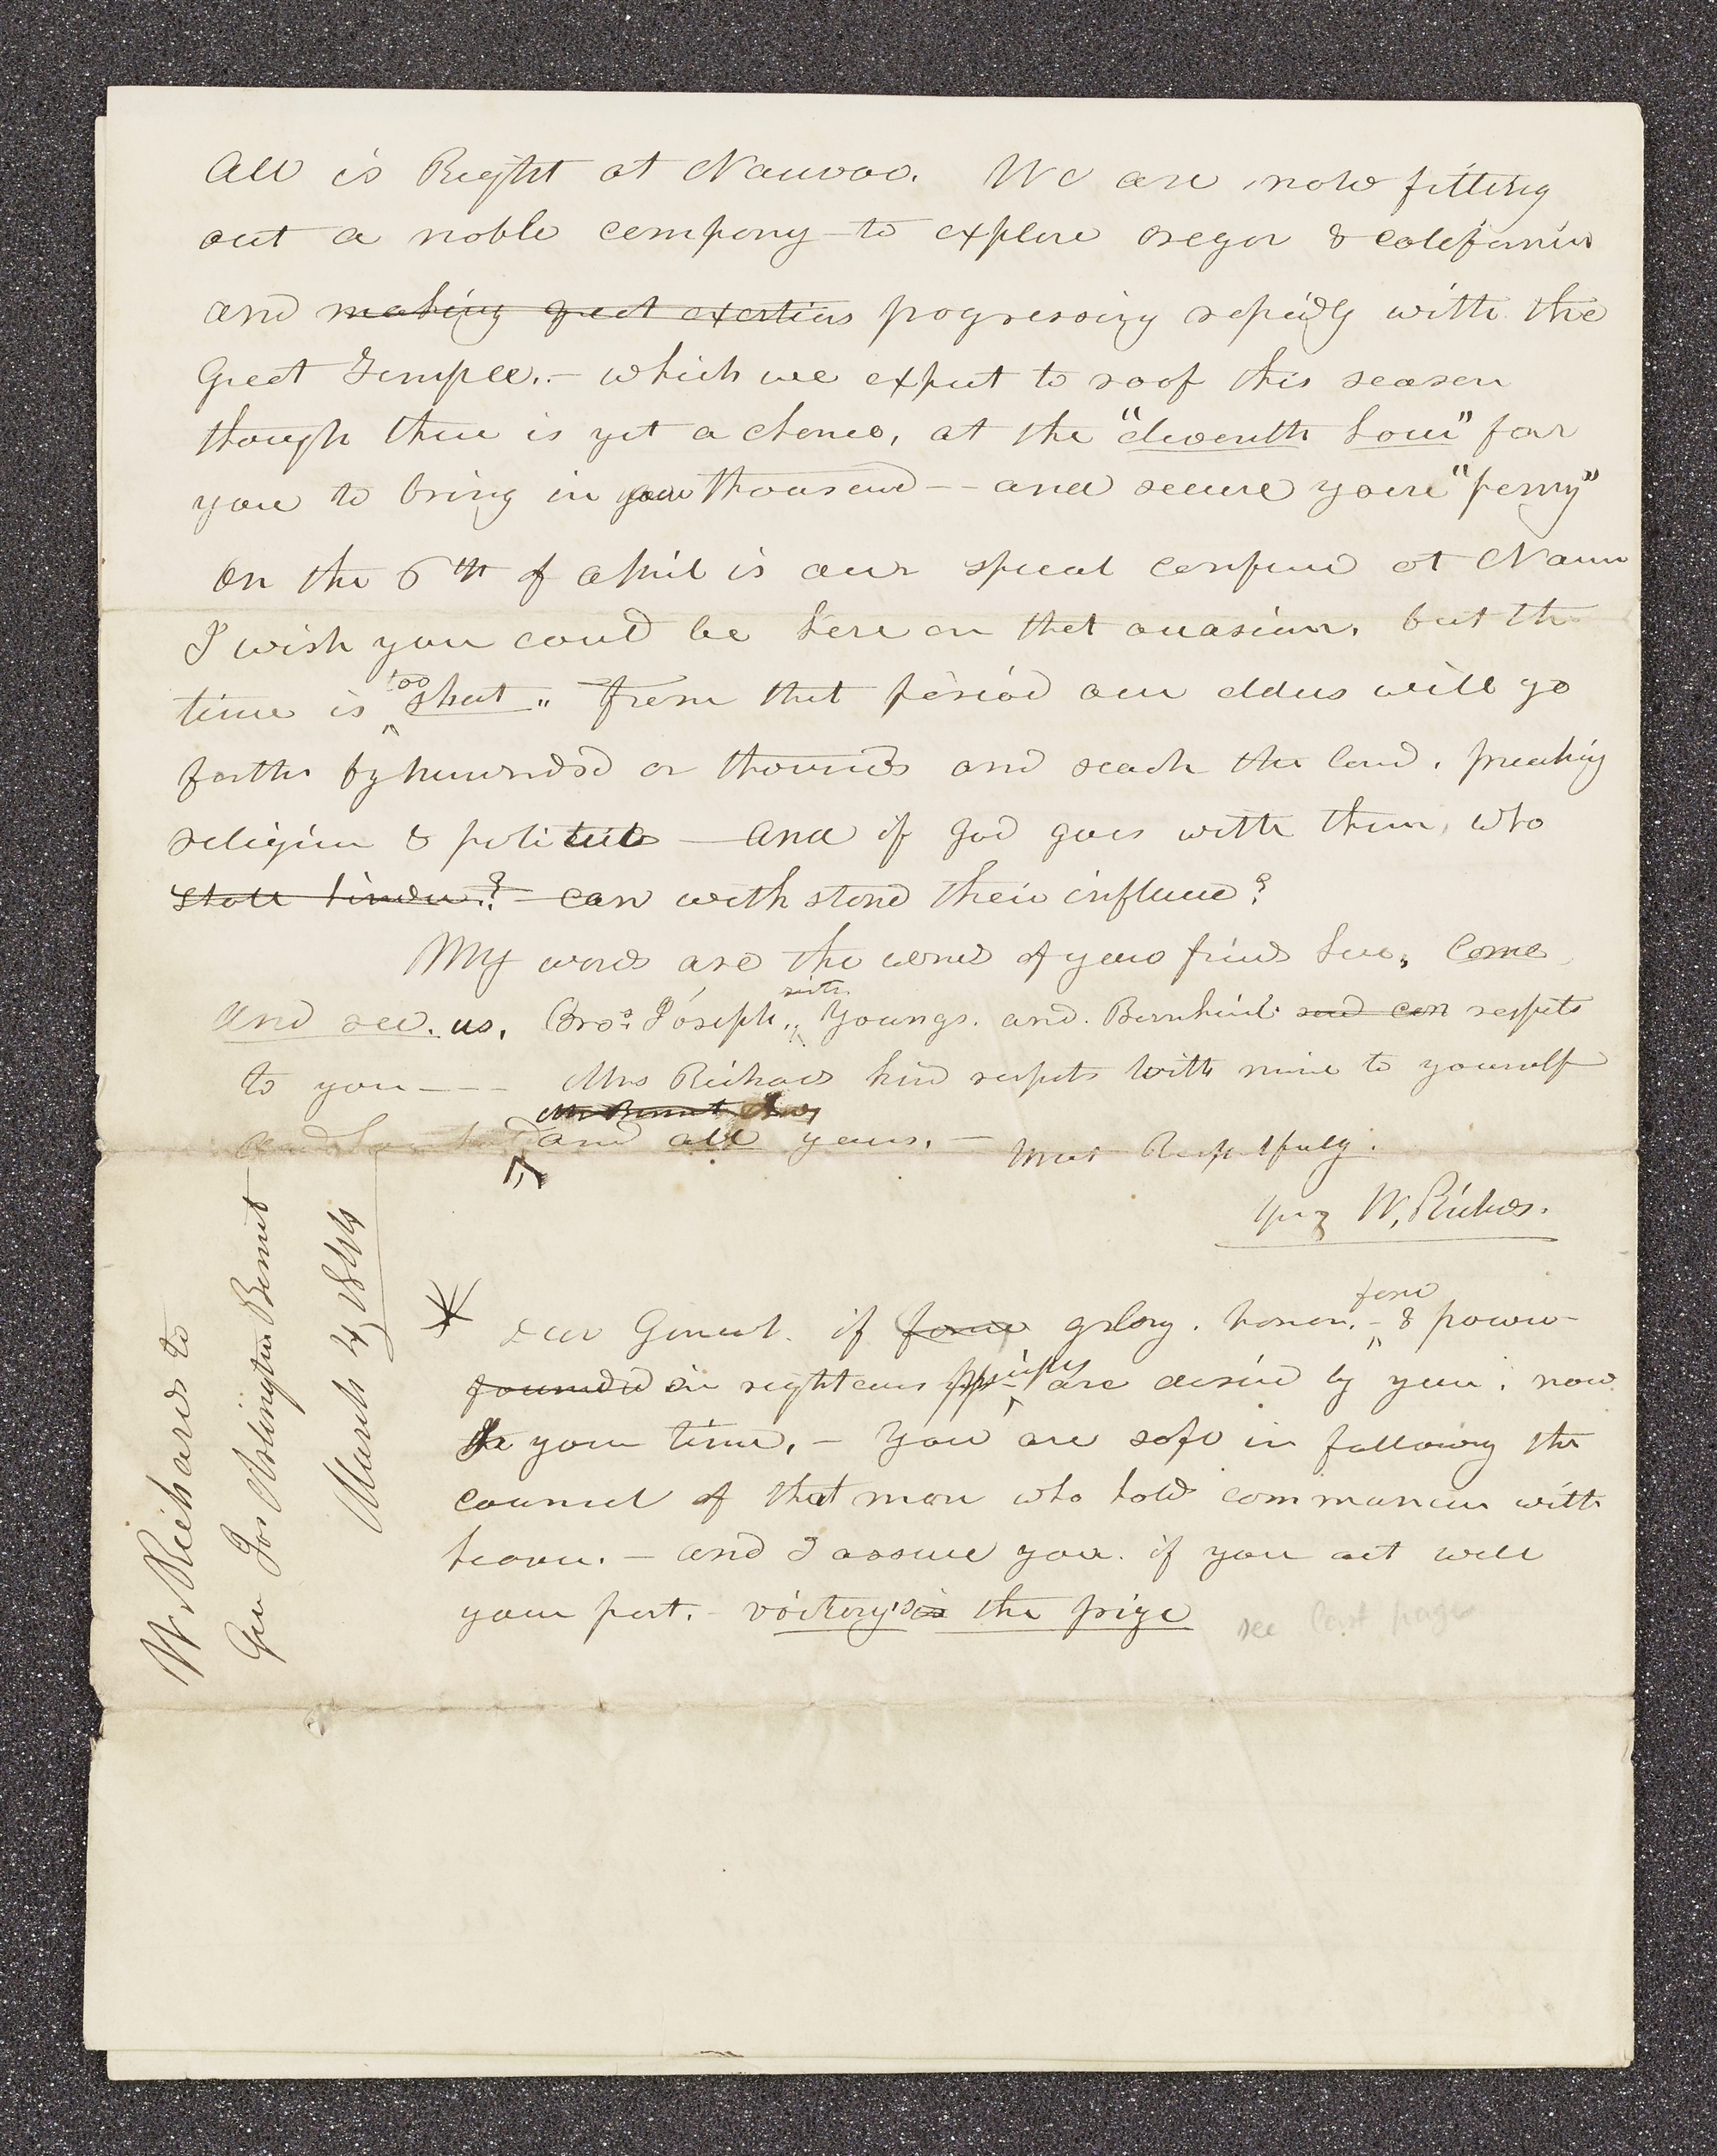 All is Right at Nauvoo. We are now fitting
out a noble company to explore oregon & california
and making great exertions progressing rapidly with the
Great Temple.- which we expect to roof this season
though there is yet a chance, at the "eleventh hour" for
you to bring in your thousand -- and secure your "penny"
On the 6th of april is our special conference at Nauvoo
I wish you could be here on that occasion. but the
time is too short. From that period our elders will go
forth by hundreds or thousands and search the land, preaching
religion & politics - and if God goes with them, who
shall hinder? can withstand their influence?
My words are the words of your friends here, Come
and see. us. Bros. Joseph. Youngs. and. Bernhisel. send con respects
to you --- Mrs Richards kind respects with mine to yourself
and all yours. - Most Respectfully.
W. Richards.
* Dear General. if fame glory. honor. fame & power
founded in righteous principles are desired by you. now
is your time. - You are safe in following the
council of that man who hold communion with
heaven. - and I assure you. if you act well
your part. - victory's is the prize
see last page
W. Richards to
Gen Jas Arlington Bennet
March 4 1844